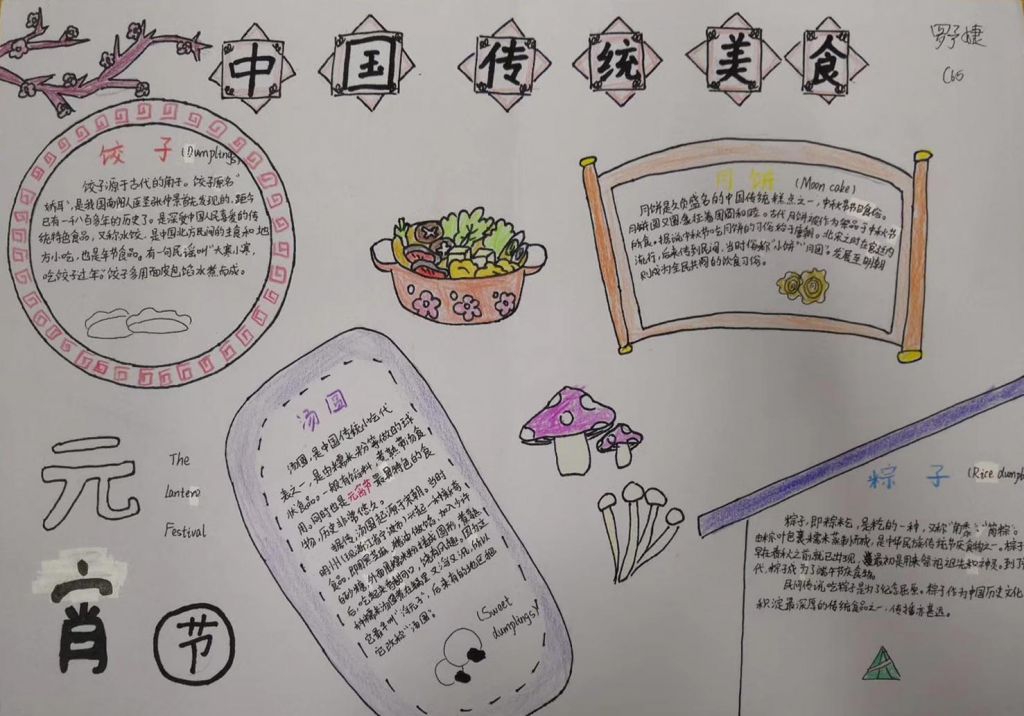 中国传统美食
罗予婕
C65
饺 子 (Dumplings)
饺子源于古代的角子。饺子原名"
娇耳",是我国南阳人医圣张仲景首先发现的,距今
已有一千八百多年的历史了。是深受中国人民喜爱的传
统特色食品,又称水饺,是中国北方民间的主食和地
方小吃,也是年节食品。有一句民谣叫"大寒小寒,
吃饺子过年。"饺子多用面皮包馅水煮而成。
月饼 (Moon cake)
月饼是久负盛名的中国传统糕点之一,中秋节节日食俗。
月饼圆又圆象征着团圆和睦。古代月饼被作为祭品于中秋节
所食。据说中秋节吃月饼的习俗始于唐朝。北宋之时在宫廷内
流行,后来传到民间,当时俗称"小饼""月团"。发展至明朝
则成为全民共同的饮食习俗。
汤圆
汤圆,是中国传统小吃代
表之一,是由糯米粉等做的球
状食品。一般有馅料,煮熟带汤食
用,同时也是元宵节最具特色的食
物,历史非常悠久。
据传,汤圆起源于宋朝。当时
明州(现浙江省宁波市)兴起一种新奇
食品,即用黑芝麻、猪油做馅、加入少许
白砂糖,外面用糯米粉搓成圆形,煮熟
后,吃起来香甜可口,饶有风趣。因为这
种糯米汤圆煮在锅里又浮又沉,所以
它最早叫"浮元子",后来有的地区还把
它改称"汤圆。
(Sweet
dumplings)
元
宵
节
The
Lantern
Festival
粽 子 (Rice dumpl
粽子,即粽米乞,是粽的一种,又称"角黍"、"筒粽"。
由粽叶包裹糯米蒸制而成,是中华民族传统节庆食物之一。粽子
早在春秋之前就已出现,最初是用来祭祀祖先和神灵。到了
代,粽子成为了端午节庆食物。
民间传说吃粽子是为了纪念屈原。粽子作为中国历史文化
积淀最深厚的传统食品之一,传播亦甚远。